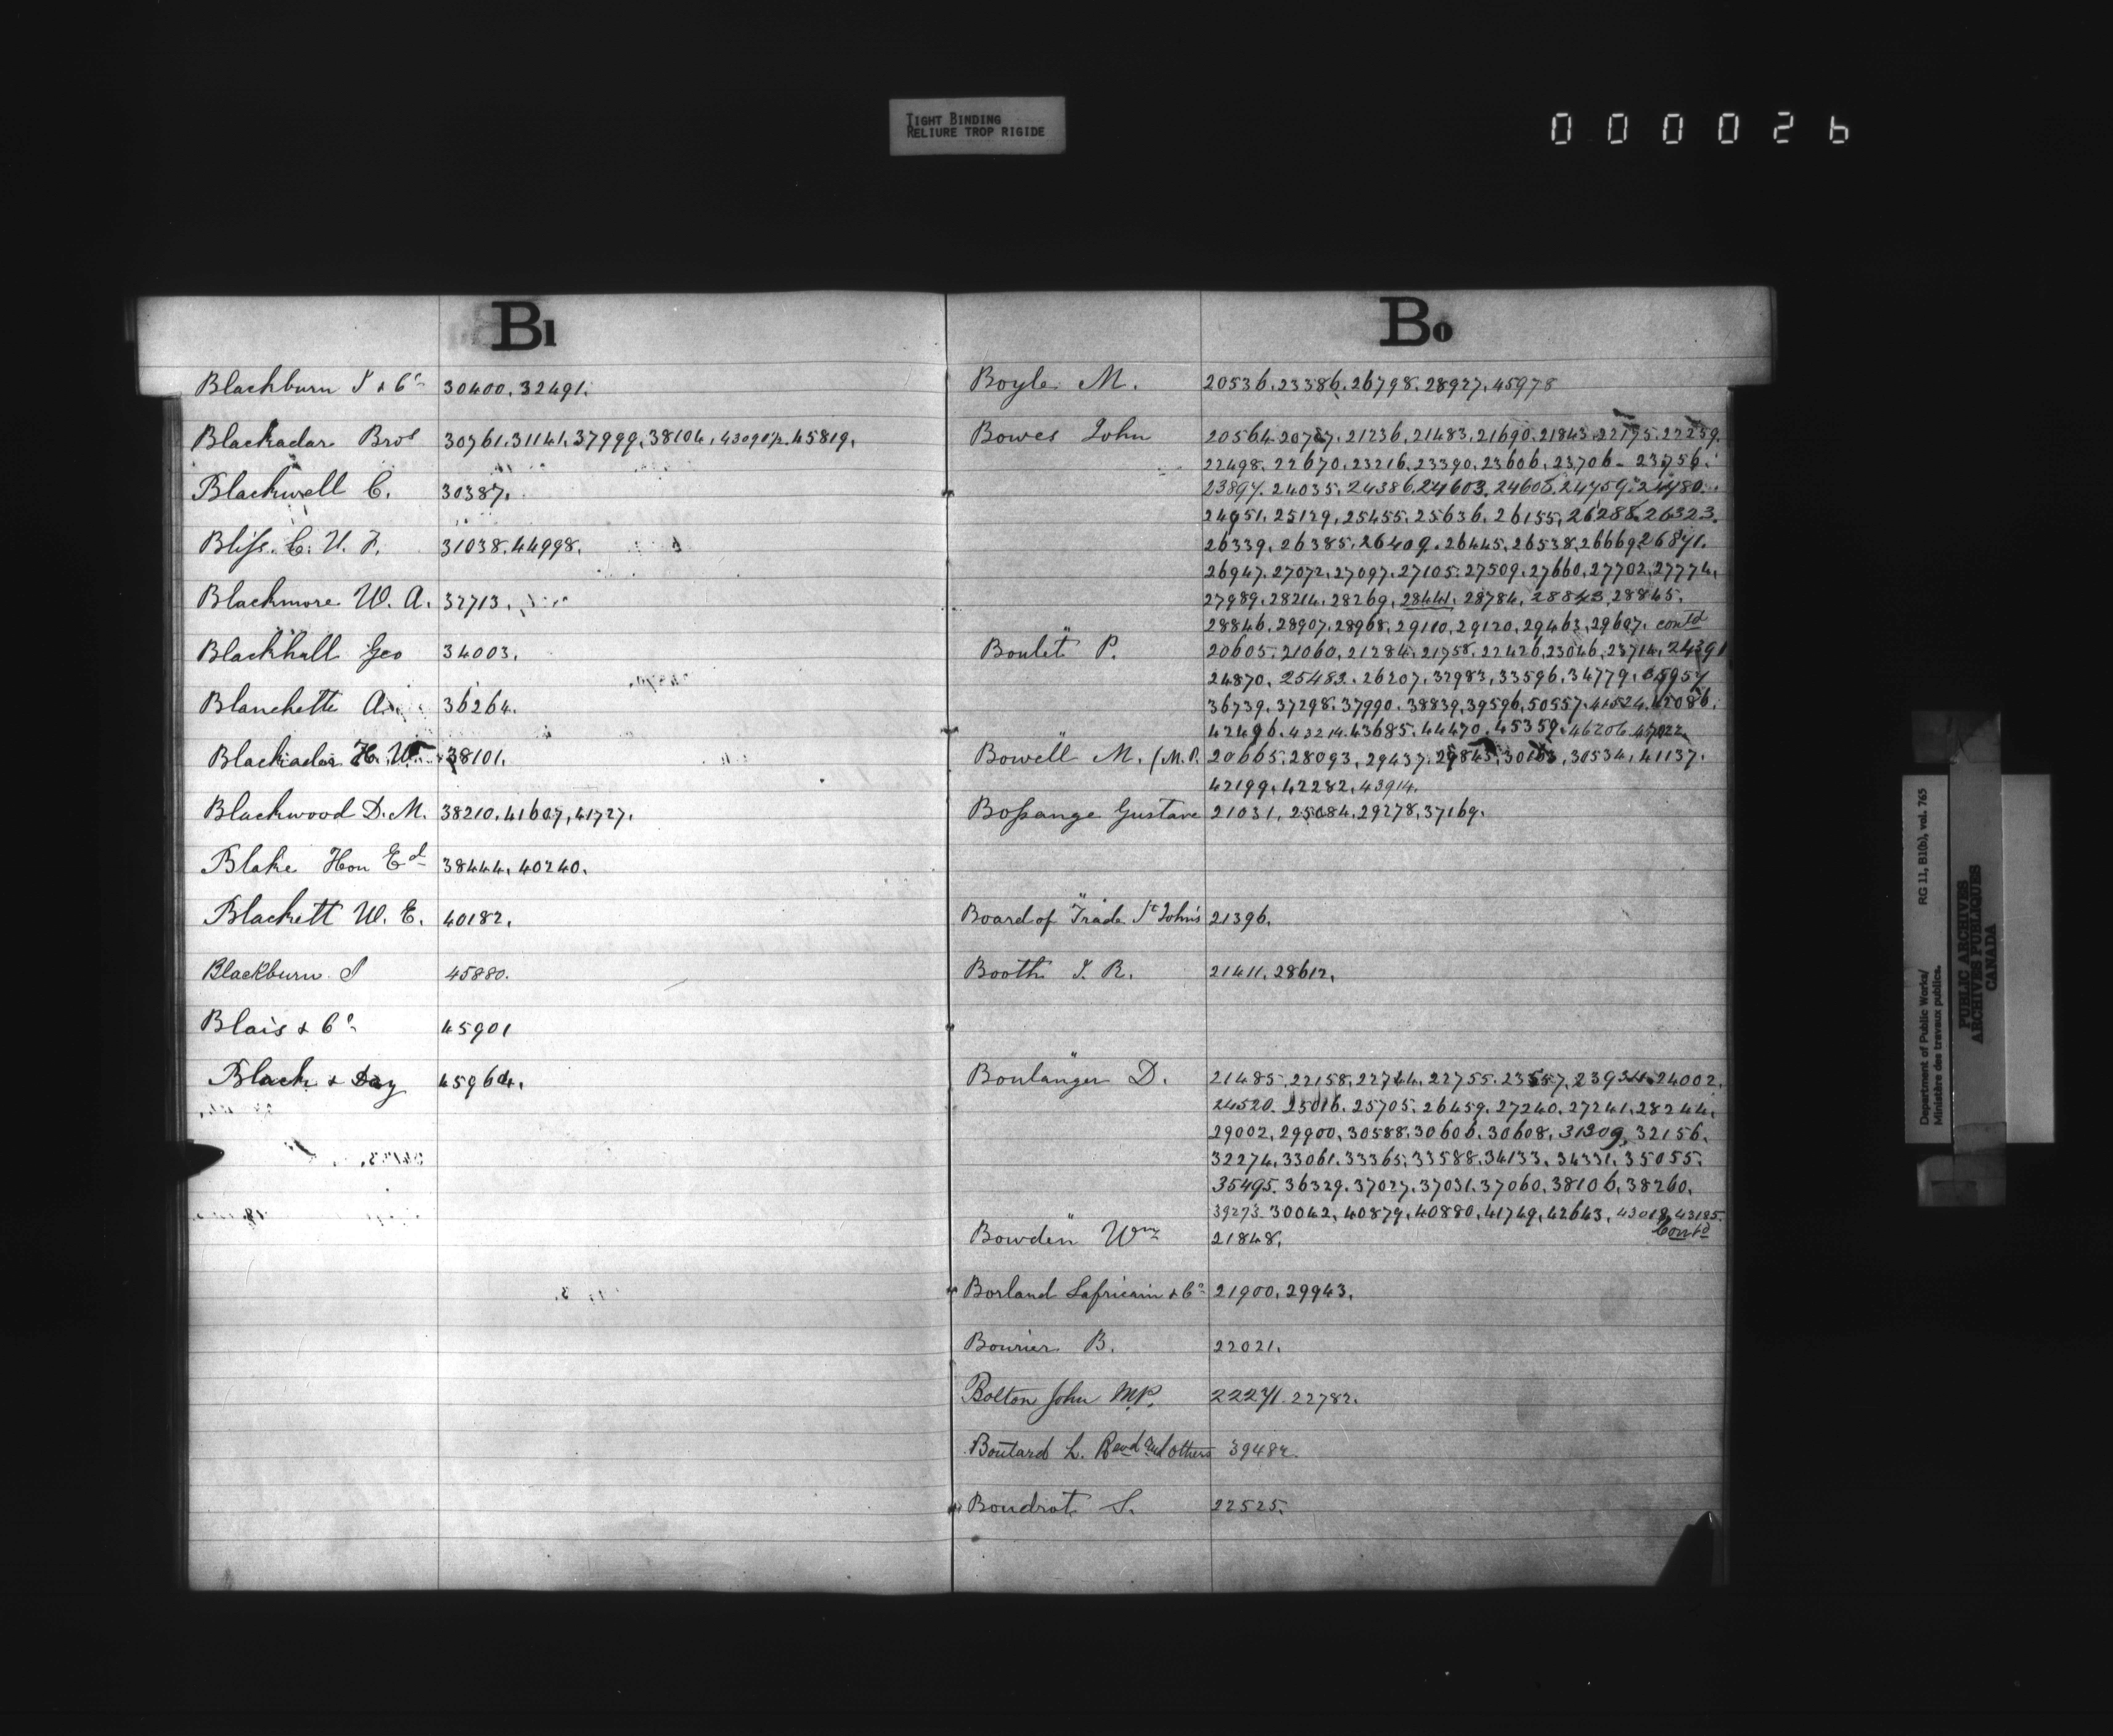 TIGHT BINDING
RELIURE TROP RIGIDE
000026
Bl
Blackburn J & Co 30400. 32491.
Blackadar Bros 30761. 31141. 37999. 38104. 45819.
Blackwell C. 30387.
Bliss C. U. F. 31038. 44998.
Blackmore W. A. 32713.
Blackhall Geo 34003.
Blanchette A. 36264.
Blackadar H. W. 38101.
Blackwood D. M. 38210. 41607, 41727.
Blake Hon Ed 38444. 40240.
Blackett W. E. 40182.
Blackburn J 45880.
Blais & Co 45901
Black & Day 45964.
Bo
Boyle M. 20536. 23386. 26798. 28927. 45978
Bowes John 20564. 20787. 21236. 21483. 21690. 21843. 22175. 22259.
22498. 22670. 23216. 23390. 23606. 23706 - 23756.
23897. 24035. 24386. 24603. 24605. 24759. 24780.
24951. 25129. 25455. 25636. 26155. 26288. 26323.
26339. 26385. 26409. 26445. 26538. 26669. 26871.
26947. 27072. 27097. 27105. 27509. 27660. 27702. 27774.
27989. 28214. 28269. 28441. 28784. 28843. 28845.
28846. 28907. 28968. 29110. 29120. 29463. 29607. contd
Boulet P. 20605. 21060. 21284. 21758. 22426. 23046. 23714. 24391
24870. 25483. 26207. 32983. 33596. 34779. 35957
36739. 37298. 37990. 38839. 39596. 50557. 41524. 42086.
42496. 43214. 43685. 44470. 45359. 46206. 47022.
Bowell M. (M.P. 20665. 28093. 29437. 29845. 30163. 30534. 41137.
42199. 42282. 43914.
Bossange Gustave 21031. 25084. 29278. 37169.
Board of Trade St Johns 21396.
Booth J. R. 21411. 28612.
Boulanger D. 21485. 22158. 22744. 22755. 23557. 23934. 24002.
24520. 25016. 25705. 26459. 27240. 27241. 28244.
29002. 29900. 30588. 30606. 30608. 31209. 32156.
32274. 33061. 33365. 33588. 34133. 34331. 35055.
35495. 36329. 37027. 37031. 37060. 38106. 38260.
39273. 30042. 40879. 40880. 41749. 42643. 43018. 43185.
Contd
Bowden Wm 21848.
Borland Lafricain & Co 21900. 29943.
Bourier B. 22021.
Bolton John M.P. 22271. 22782.
Boutard L. Revd and others 39482.
Boudrot S. 22525.
Department of Public Works/ RG 11, B1(b), vol. 765
Ministère des travaux publics.
PUBLIC ARCHIVES
ARCHIVES PUBLIQUES
CANADA